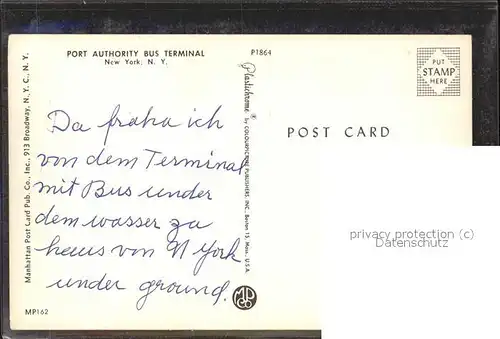 PORT AUTHORITY BUS TERMINAL
New York, N. Y.
P1864
PUT
STAMP
HERE
POST CARD
Da fraha ich
von dem Terminal
mit Bus under
dem wasser za
haus von N York
under ground.
Manhattan Post Card Pub. Co., Inc., 913 Broadway, N. Y. C., N. Y.
Plastichrome ® by COLOURPICTURE PUBLISHERS, INC., Boston 15, Mass., U.S.A.
MP
CO
MP162
privacy protection (c)
Datenschutz